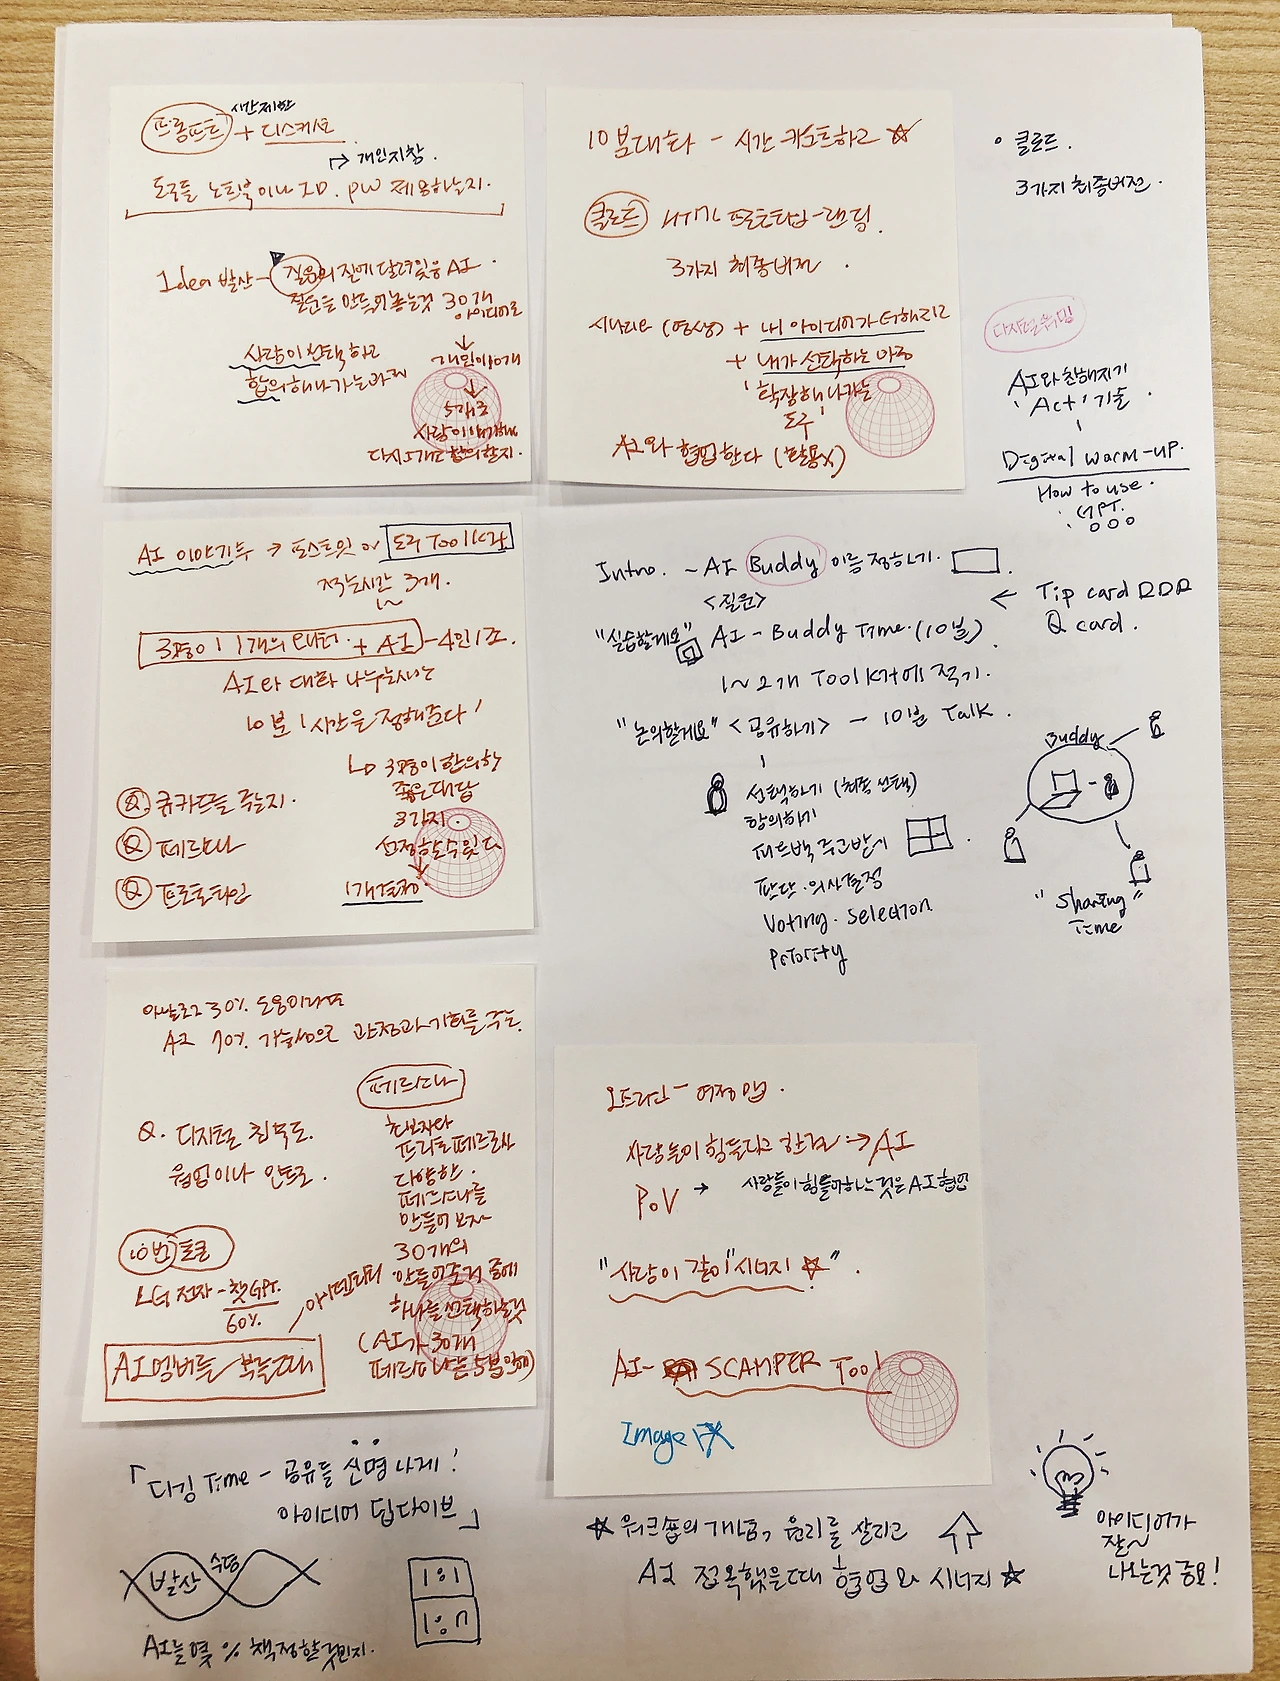 시간제한
프롬프트 + 디스커션
→ 개인지참.
도구를 노트북이나 ID. PW 제공하는지.
Idea 발산 - 질문의 질에 달려있음 AI.
질문을 만들어 놓는것 30개
아이디어로
↓
사람이 선택하고
합의해나가는
개인이 10개
↓
5개로
사람이
다시 1개로 합의할지.
10분대화 - 시간 카운트하고 ☆
클로드 HTML 프로토타입-랜딩
3가지 최종버전.
시나리오 (영상) + 내 아이디어가 더해지고
+ 내가 선택하는
'확장해 나가는
도구'
AI와 협업한다 (활용x)
• 클로드.
3가지 최종버전.
디지털워밍
AI와 친해지기
'Act' 기술.
Digital warm-up.
How to use.
GPT.
AI 이야기 → 포스트잇 or 도구 Toolkit
적는시간 3개.
1~
3명이 1개의 + AI - 4인 1조.
AI와 대화 나누는시간
10분 '시간을 정해준다'
↳ 3명이 합의한
좋은대답
3가지
선정할수있다
↓
1개결정.
Q. 큐카드를 주는지.
Q 페르소나
Q 프로토타입
Intro. - AI Buddy 이름 정하기.
<질문>
← Tip card
Q card.
"실습할게요" AI - Buddy Time. (10분)
1~2개 Toolkit에 적기.
"논의할게요" <공유하기> - 10분 Talk.
선택하기 (최종 선택)
합의하기
피드백 주고받기
판단·의사결정
Voting. Selection
Priority
Buddy
"Sharing"
Time
아날로그 30% 도움이라면
AI 70% 가능성으로 관점과 기회를 주는.
페르소나
Q. 디지털 친묵도.
웜업이나 인트로.
한사람
프리토 페르소나
다양한.
페르소나를
만들어 보자
30개의
만들어주고 중에
하나를 선택하는것
(AI가 30개
페르소나는 5분 안에)
10번 토론
LG 전자 - 챗GPT.
60%.
아이덴티티
AI멤버를 부를때
오프라인 - 여정맵.
사람들이 힘들다고 한것 → AI
PoV → 사람들이 힘들어하는 것은 AI 협업
"사람이 같이" 시너지 ☆".
AI - SCAMPER Tool
Image ☆
「디깅 Time - 공유를 신명나게!
아이디어 딥다이브」
발산 수렴
1:1
1:n
AI는 몇 % 책정할것인지.
☆ 워크숍의 개념, 원리를 살리고
AI 접목했을때 협업과 시너지 ☆
아이디어가
잘~
나는것 중요!